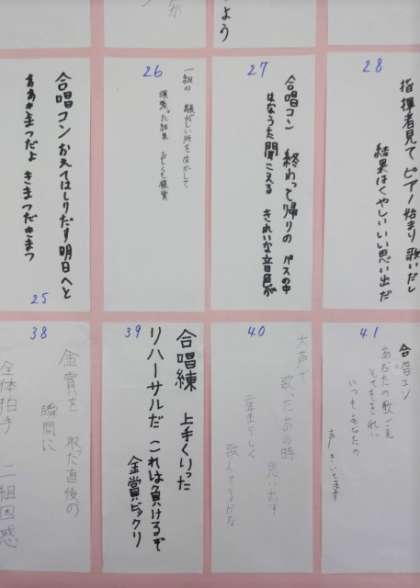 よう
26
一組の
27
合唱コン 終わって帰りの バスの中
はなうた聞こえる きれいな音色が
28
指揮者見て ピアノ始まり 歌いだし
結果はくやしい いい思い出だ
合唱コン おえてはしりだす 明日へと
ああきまつだよ きまつだきまつ
25
38
金賞を 取った直後の
瞬間に
全体拍手 二組困惑
39
合唱練 上手くいった
リハーサルだ これは負けるぞ
金賞ビックリ
40
大声で
歌ったあの時
思い出す
41
合唱コン
あなたの歌ごえ
とてもきれい
いつもあなたの